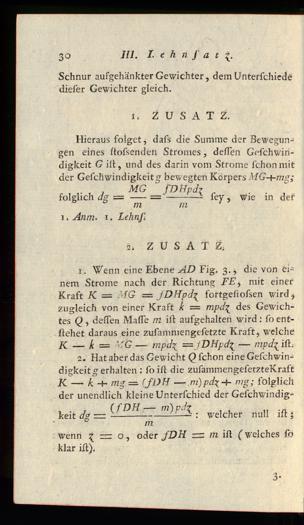 30 III. Lehnsatz.
Schnur aufgehänkter Gewichter, dem Unterschiede
dieser Gewichter gleich.
1. ZUSATZ.
Hieraus folget, daſs die Summe der Bewegun-
gen eines ſtoſsenden Stromes, deſſen Geſchwin-
digkeit G iſt, und des darin vom Strome ſchon mit
der Geſchwindigkeit g bewegten Körpers MG+mg;
folglich dg = MG/m = ſDHpdz/m ſey, wie in der
1. Anm. 1. Lehnſ.
2. ZUSATZ.
1. Wenn eine Ebene AD Fig. 3., die von ei-
nem Strome nach der Richtung FE, mit einer
Kraft K = MG = ſDHpdz fortgeſtoſsen wird,
zugleich von einer Kraft k = mpdz des Gewich-
tes Q, deſſen Maſſe m iſt aufgehalten wird: ſo ent-
ſtehet daraus eine zuſammengeſetzte Kraft, welche
K — k = MG — mpdz = ſDHpdz — mpdz iſt.
2. Hat aber das Gewicht Q ſchon eine Geſchwin-
digkeit g erhalten: ſo iſt die zuſammengeſetzte Kraft
K — k + mg = (ſDH — m)pdz + mg; folglich
der unendlich kleine Unterſchied der Geſchwindig-
keit dg = (ſDH — m)pdz/m : welcher null iſt;
wenn z = 0, oder ſDH = m iſt (welches ſo
klar iſt).
3.